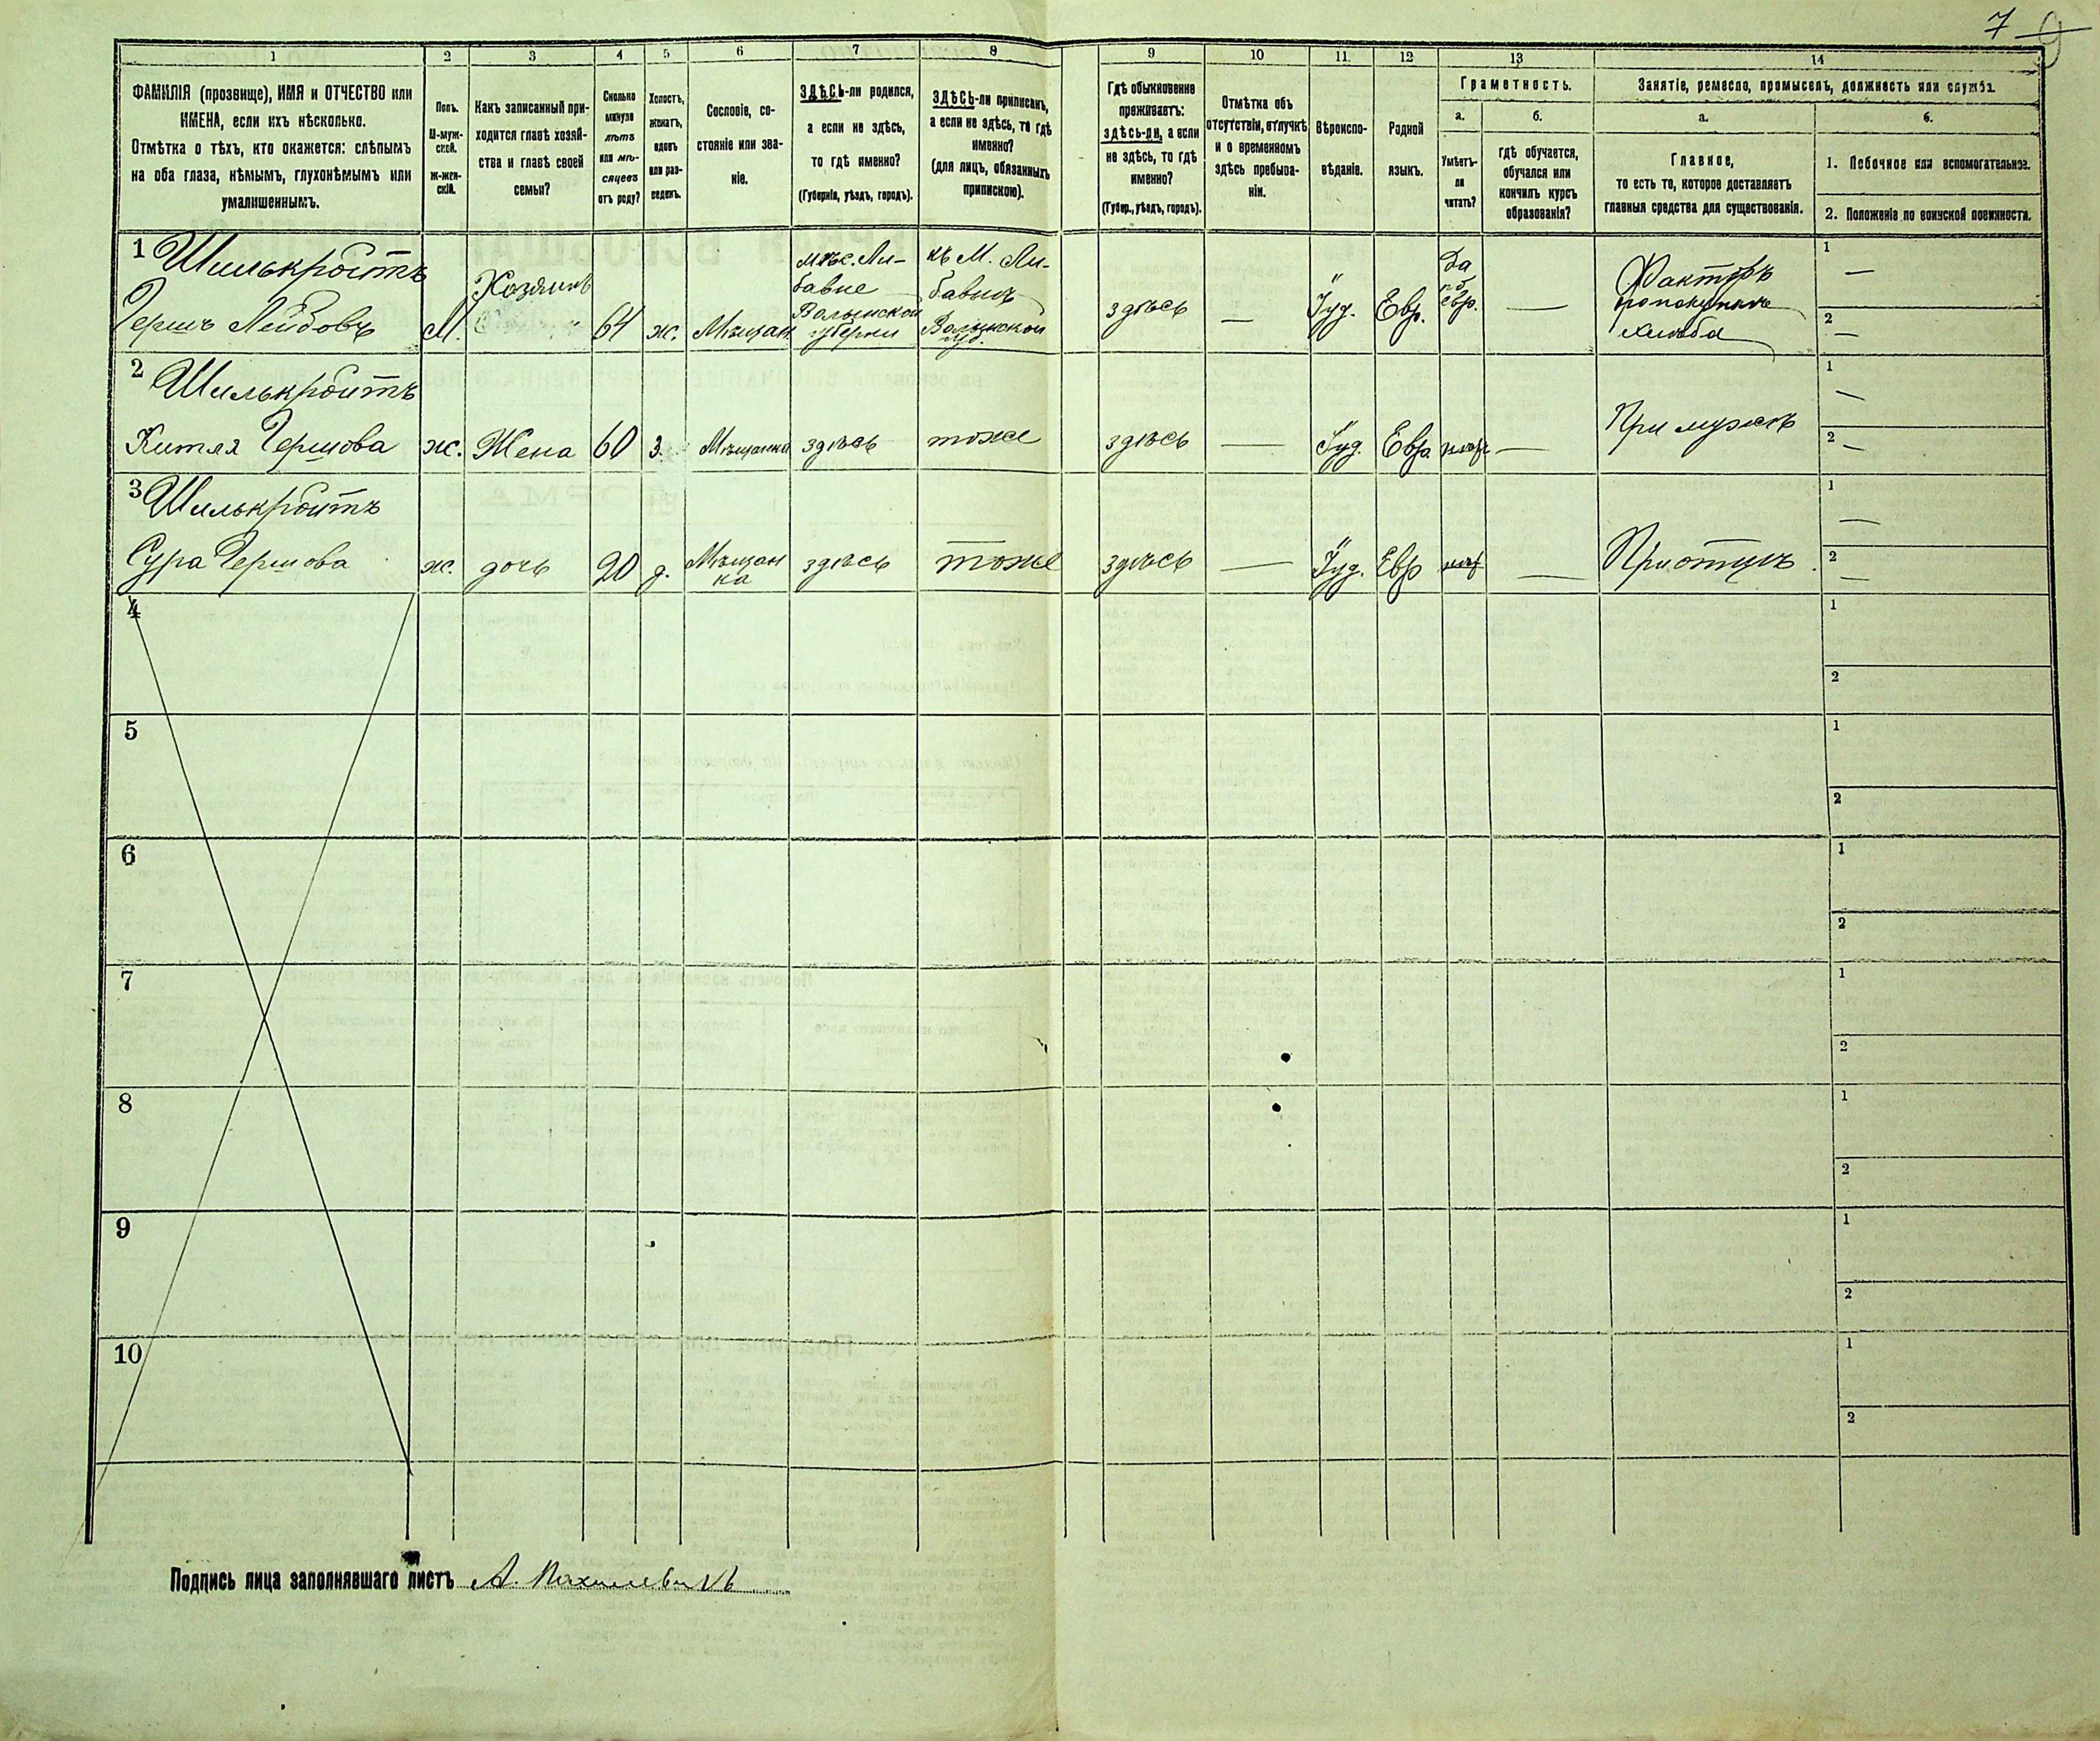 7 9
1 2 3 4 5 6 7 8 9 10 11. 12 13 14
ФАМИЛІЯ (прозвище), ИМЯ и ОТЧЕСТВО или
ИМЕНА, если ихъ нѣсколько.
Отмѣтка о тѣхъ, кто окажется: слѣпымъ
на оба глаза, нѣмымъ, глухонѣмымъ или
умалишеннымъ.
Полъ.
М-муж-
ской.
Ж-жен-
скій.
Какъ записанный при-
ходится главѣ хозяй-
ства и главѣ своей
семьи?
Сколько
минуло
лѣтъ
или мѣ-
сяцевъ
отъ роду?
Холостъ,
женатъ,
вдовъ
или раз-
веденъ.
Сословіе, со-
стояніе или зва-
ніе.
ЗДѢСЬ-ли родился,
а если не здѣсь,
то гдѣ именно?
(Губернія, уѣздъ, городъ).
ЗДѢСЬ-ли приписанъ,
а если не здѣсь, то гдѣ
именно?
(для лицъ, обязанныхъ
припискою).
Гдѣ обыкновенно
проживаетъ:
здѣсь-ли, а если
не здѣсь, то гдѣ
именно?
(Губер., уѣздъ, городъ).
Отмѣтка объ
отсутствіи, отлучкѣ
и о временномъ
здѣсь пребыва-
ніи.
Вѣроиспо-
вѣданіе.
Родной
языкъ.
Грамотность.
а.
Умѣетъ-
ли
читать?
б.
гдѣ обучается,
обучался или
кончилъ курсъ
образованія?
Занятіе, ремесло, промыселъ, должность или служба.
а.
Главное,
то есть то, которое доставляетъ
главныя средства для существованія.
б.
1. Побочное или вспомогательное.
2. Положеніе по воинской повинности.
1 Шилькройтъ
Гершъ Лейбовъ
М.
Хозяинъ
64
ж.
Мѣщан.
мѣс. Ли-
бавне
Волынской
губерни
къ М. Ли-
бавнѣ
Волынской
губ.
здѣсь
—
Іуд.
Евр.
Да
по
евр.
—
Факторъ
по покупкѣ
хлѣба
1 —
2 —
2 Шилькройтъ
Китля Гершова
ж.
Жена
60
з.
Мѣщанка
здѣсь
тоже
здѣсь
—
Іуд.
Евр.
нѣт
—
При мужѣ
1 —
2 —
3 Шилькройтъ
Сура Гершова
ж.
дочь
20
д.
Мѣщан
ка
здѣсь
тоже
здѣсь
—
Іуд.
Евр
нѣт
—
При отцѣ.
1 —
2 —
4 1
2
5 1
2
6 1
2
7 1
2
8 1
2
9 1
2
10 1
2
Подпись лица заполнявшаго листъ А.